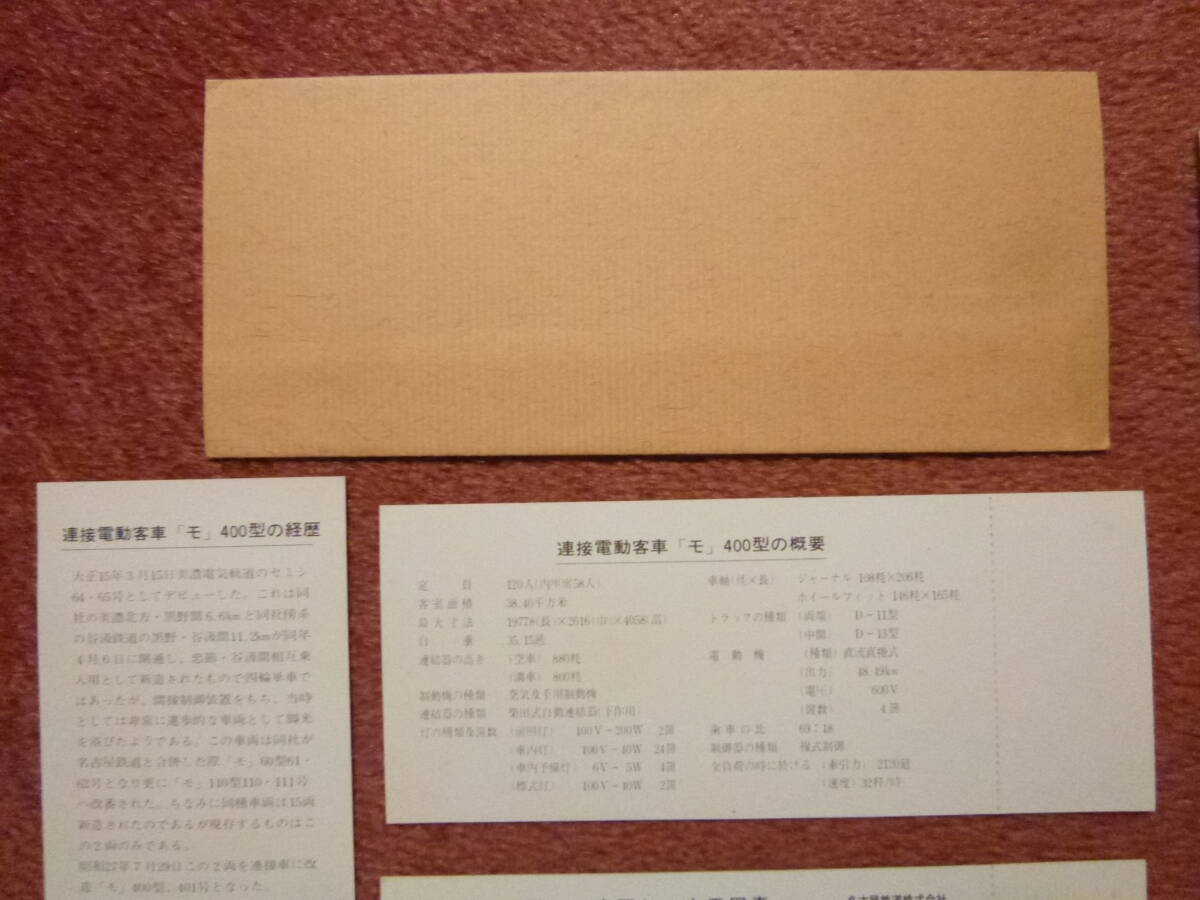 連接電動客車「モ」400型の経歴
大正15年3月15日美濃電気軌道のセミシ
64・65号としてデビューした。これは同
社の美濃北方・黒野間6.6kmと同社傍系
の谷汲鉄道の黒野・谷汲間11.2kmが同年
4月6日に開通し、忠節・谷汲間相互乗
入用として新造されたもので四輪単車で
はあったが、間接制御装置をもち、当時
としては非常に進歩的な車両として脚光
を浴びたようである。この車両は同社が
名古屋鉄道と合併した際「モ」60型61・
62号となり更に「モ」110型110・111号
へ改番された。ちなみに同種車両は15両
新造されたのであるが現存するものはこ
の2両のみである。
昭和27年7月29日この2両を連接車に改
造「モ」400型、401号となった。
連接電動客車「モ」400型の概要
定員 120人(内座席58人)
客室面積 38.40平方米
最大寸法 19778(長)×2616(巾)×4058(高)
自重 35.15瓲
連結器の高さ (空車) 880粍
(満車) 800粍
制動機の種類 空気及手用制動機
連結器の種類 柴田式自動連結器(下作用)
灯の種類及箇数 (前照灯) 100V-200W 2箇
(車内灯) 100V-40W 24箇
(車内予備灯) 6V-5W 4箇
(標式灯) 100V-40W 2箇
車軸(径×長) ジャーナル 108粍×206粍
ホイールフィット 146粍×165粍
トラックの種類 (両端) D-11型
(中間) D-13型
電動機 (種類) 直流直捲式
(出力) 48.49kw
(電圧) 600V
(箇数) 4箇
歯車の比 69:18
制御器の種類 複式制御
全負荷の時に於ける (牽引力) 2120瓩
(速度) 32粁/時
名古屋鉄道株式会社